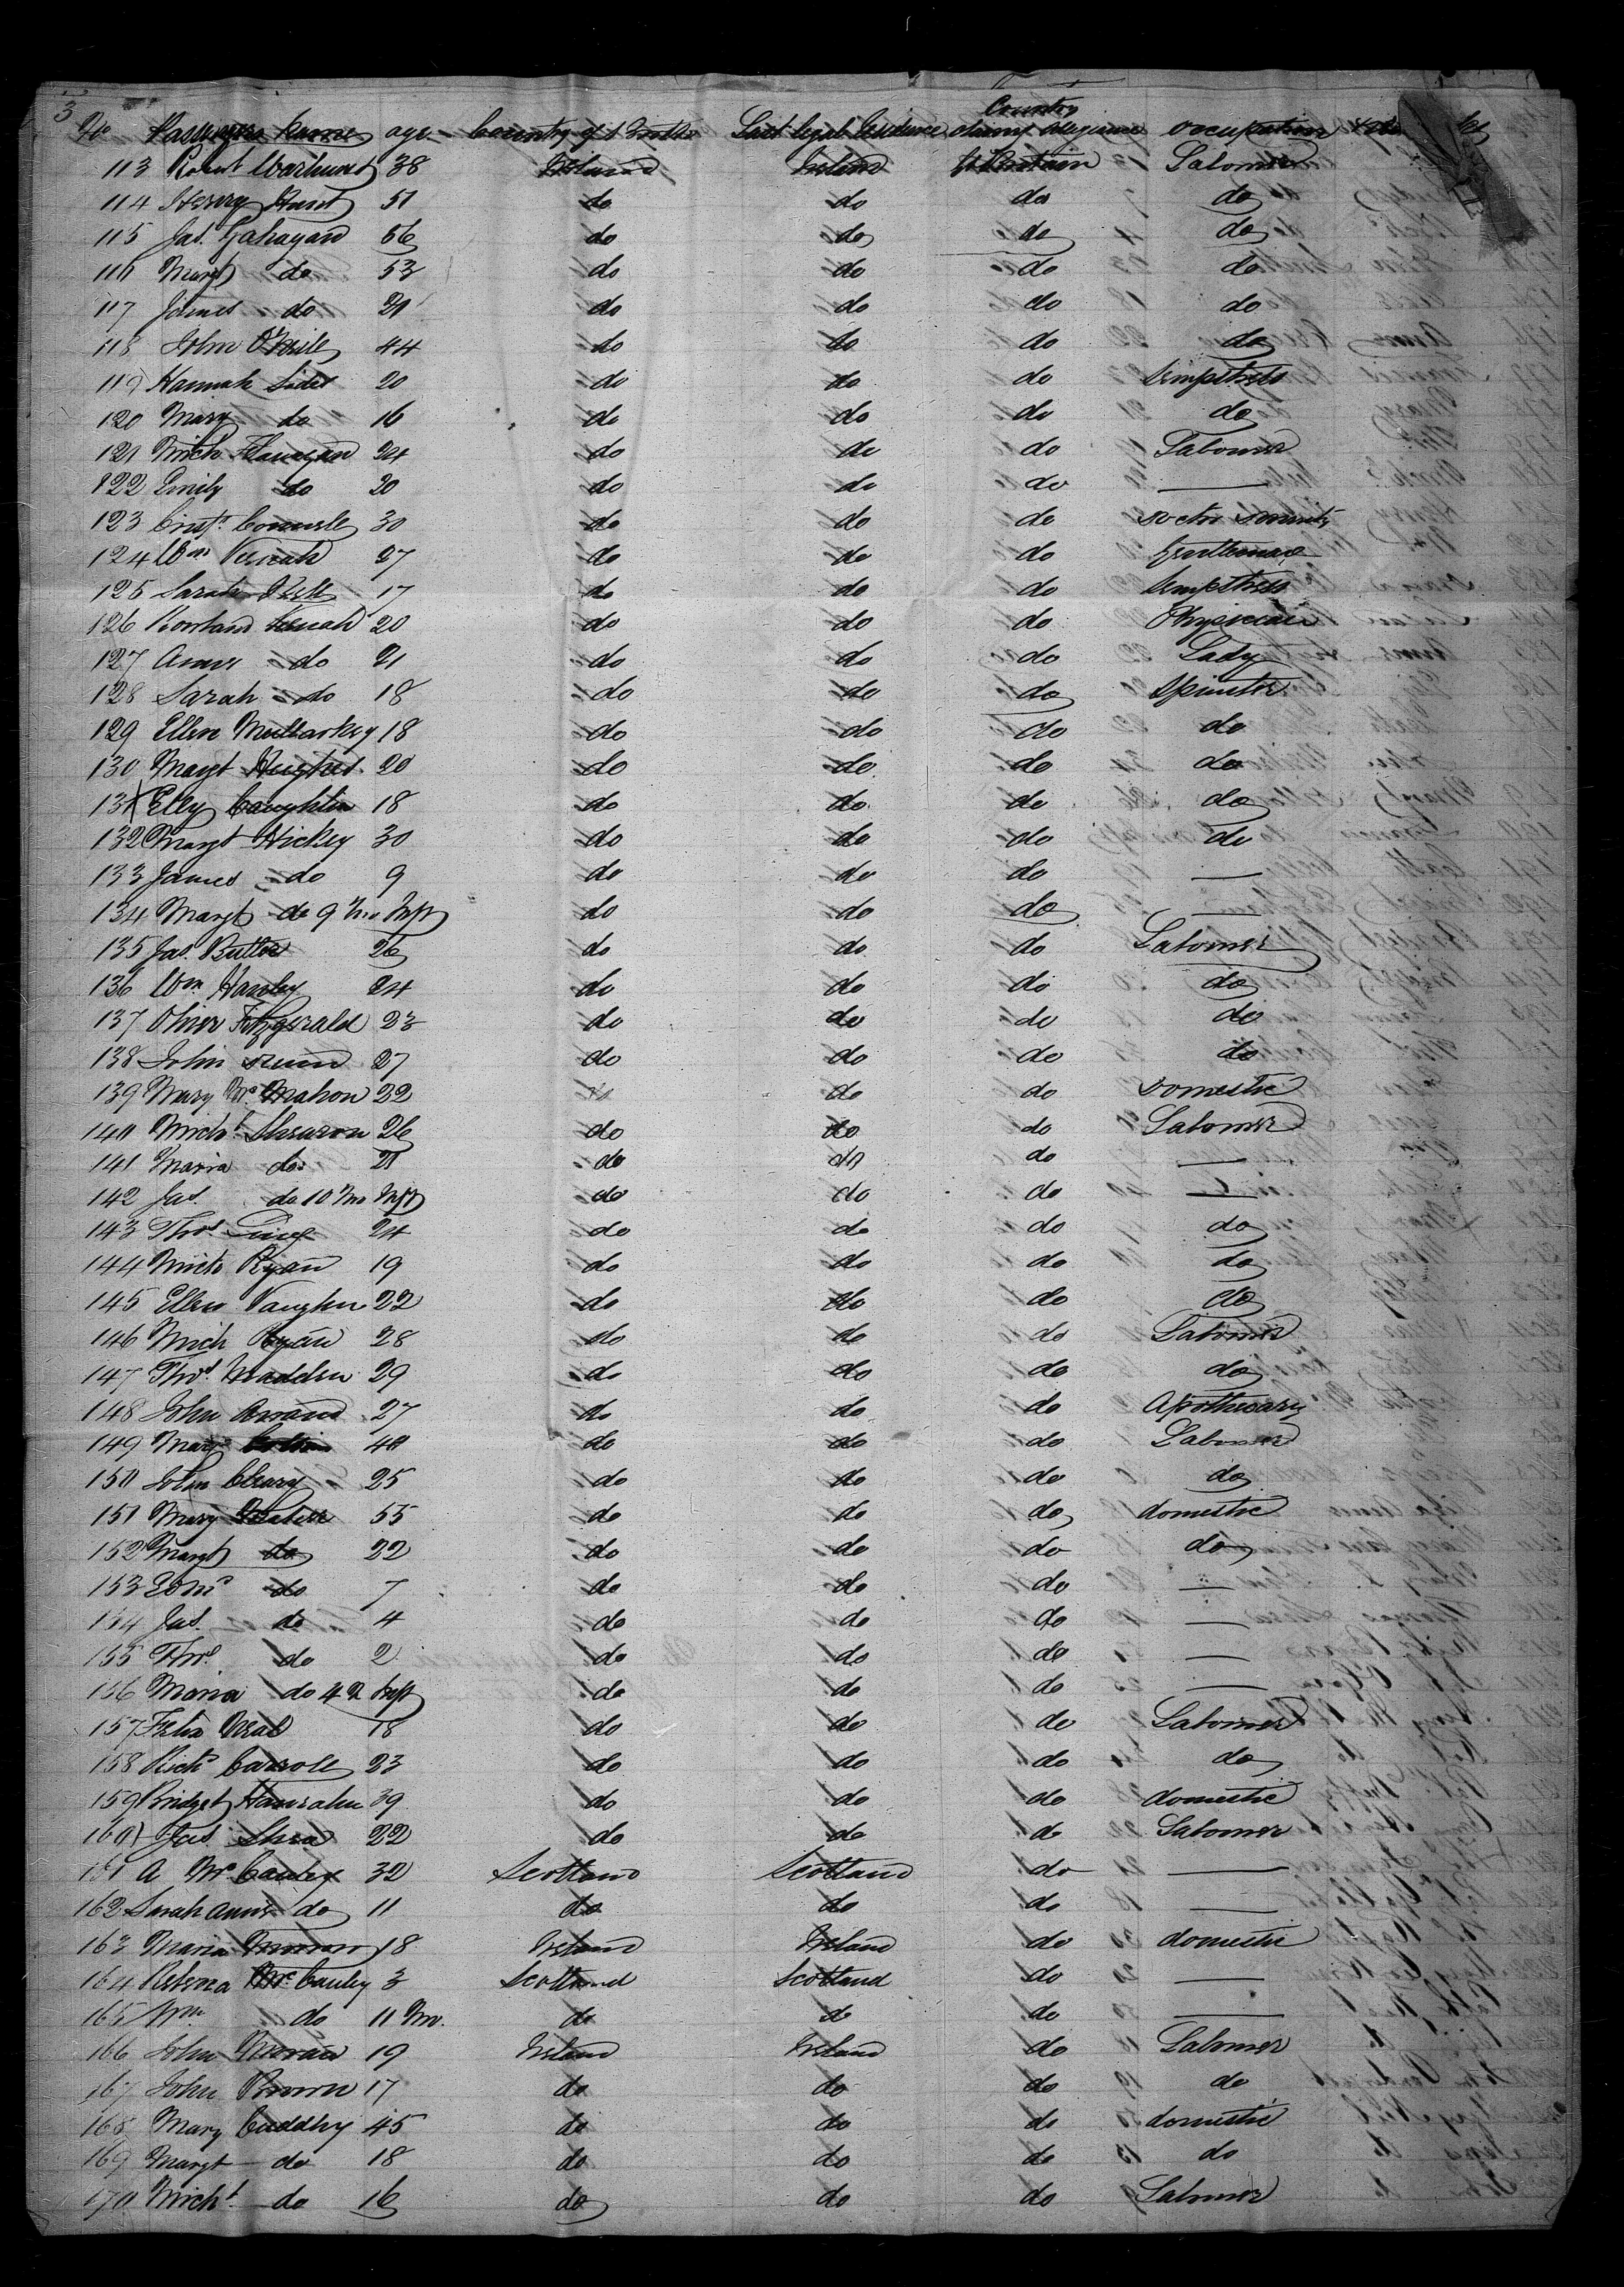 3
No Passengers Name age Country of Birth Last legal Residence Country claimg Allegiance occupation
113 Robert 38 Ireland Ireland Gt Britain Laborer
114 Henry Hunt 51 do do do do
115 Jas. Gahagan 56 do do do do
116 Margt do 53 do do do do
117 James do 21 do do do do
118 John O'Neile 44 do do do do
119 Hannah 20 do do do Sempstress
120 Mary do 16 do do do do
121 Mich Flanagan 24 do do do Laborer
122 Emily do 20 do do do —
123 30 do do do
124 Wm 27 do do do Gentleman
125 Sarah 17 do do do Sempstress
126 Rowland 20 do do do Physician
127 do 21 do do do Lady
128 Sarah do 18 do do do Spinster
129 Ellen Mullarkey 18 do do do do
130 Margt Hughes 20 do do do do
131 Elly Coughlin 18 do do do do
132 Margt Hickey 30 do do do do
133 James do 9 do do do —
134 Margt do 9 mo Inft do do do —
135 Jas. Butler 26 do do do Laborer
136 Wm Hanley 24 do do do do
137 Oliver Fitzgerald 23 do do do do
138 John 27 do do do do
139 Mary McMahon 22 do do Domestic
140 Michl 26 do do do Laborer
141 Maria do 21 do do do —
142 Jas. do 10 mo Inft do do do —
143 Thos 24 do do do do
144 Mich Ryan 19 do do do do
145 Ellen Vaughn 22 do do do do
146 Mich Ryan 28 do do do Laborer
147 Thos Madden 29 do do do do
148 John 27 do do do Apothecary
149 40 do do do Laborer
150 John Cleary 25 do do do do
151 Mary 55 do do do domestic
152 Margt do 22 do do do do
153 Edmd do 7 do do do —
154 Jas. do 4 do do do —
155 Thos do 2 do do do —
156 Maria do Inft do do do —
157 Felix 18 do do do Laborer
158 Richd Carroll 23 do do do do
159 Bridget Hanrahn 39 do do do domestic
160 Jas. Shea 22 do do do Laborer
161 A McCauley 32 Scotland Scotland do —
162 Sarah Ann do 11 do do do —
163 Maria 18 Ireland Ireland do domestic
164 Rebecca McCauley 3 Scotland Scotland do —
165 Wm do 11 mo. do do do —
166 John Moran 19 Ireland Ireland do Laborer
167 John Brown 17 do do do do
168 Mary Cuddhy 45 do do do domestic
169 Margt do 18 do do do do
170 Michl do 16 do do do Laborer